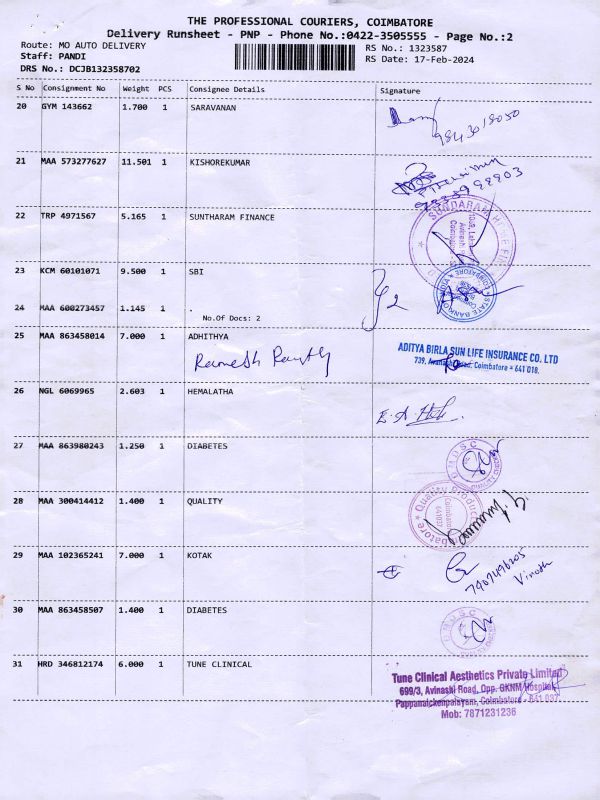 THE PROFESSIONAL COURIERS, COIMBATORE
Delivery Runsheet - PNP - Phone No.:0422-3505555 - Page No.:2
Route: MO AUTO DELIVERY
RS No.: 1323587
Staff: PANDI
RS Date: 17-Feb-2024
DRS No.: DCJB132358702
S No Consignment No Weight PCS Consignee Details Signature
20 GYM 143662 1.700 1 SARAVANAN
9843018050
21 MAA 573277627 11.501 1 KISHOREKUMAR
22 TRP 4971567 5.165 1 SUNTHARAM FINANCE
SUNDARAM HOME FIN
23 KCM 60101071 9.500 1 SBI
STATE BANK OF INDIA
COIMBATORE
24 MAA 600273457 1.145 1 .
No.Of Docs: 2
25 MAA 863458014 7.000 1 ADHITHYA
Ramesh
ADITYA BIRLA SUN LIFE INSURANCE CO. LTD
739, Avinashi Road, Coimbatore - 641 018.
26 NGL 6069965 2.603 1 HEMALATHA
27 MAA 863980243 1.250 1 DIABETES
28 MAA 300414412 1.400 1 QUALITY
Quality Products
Coimbatore
641037
29 MAA 102365241 7.000 1 KOTAK
Vinoth
30 MAA 863458507 1.400 1 DIABETES
31 HRD 346812174 6.000 1 TUNE CLINICAL
Tune Clinical Aesthetics Private Limited
699/3, Avinashi Road, Opp. GKNM Hospital,
Pappanaickenpalayam, Coimbatore - 641 037
Mob: 7871231236